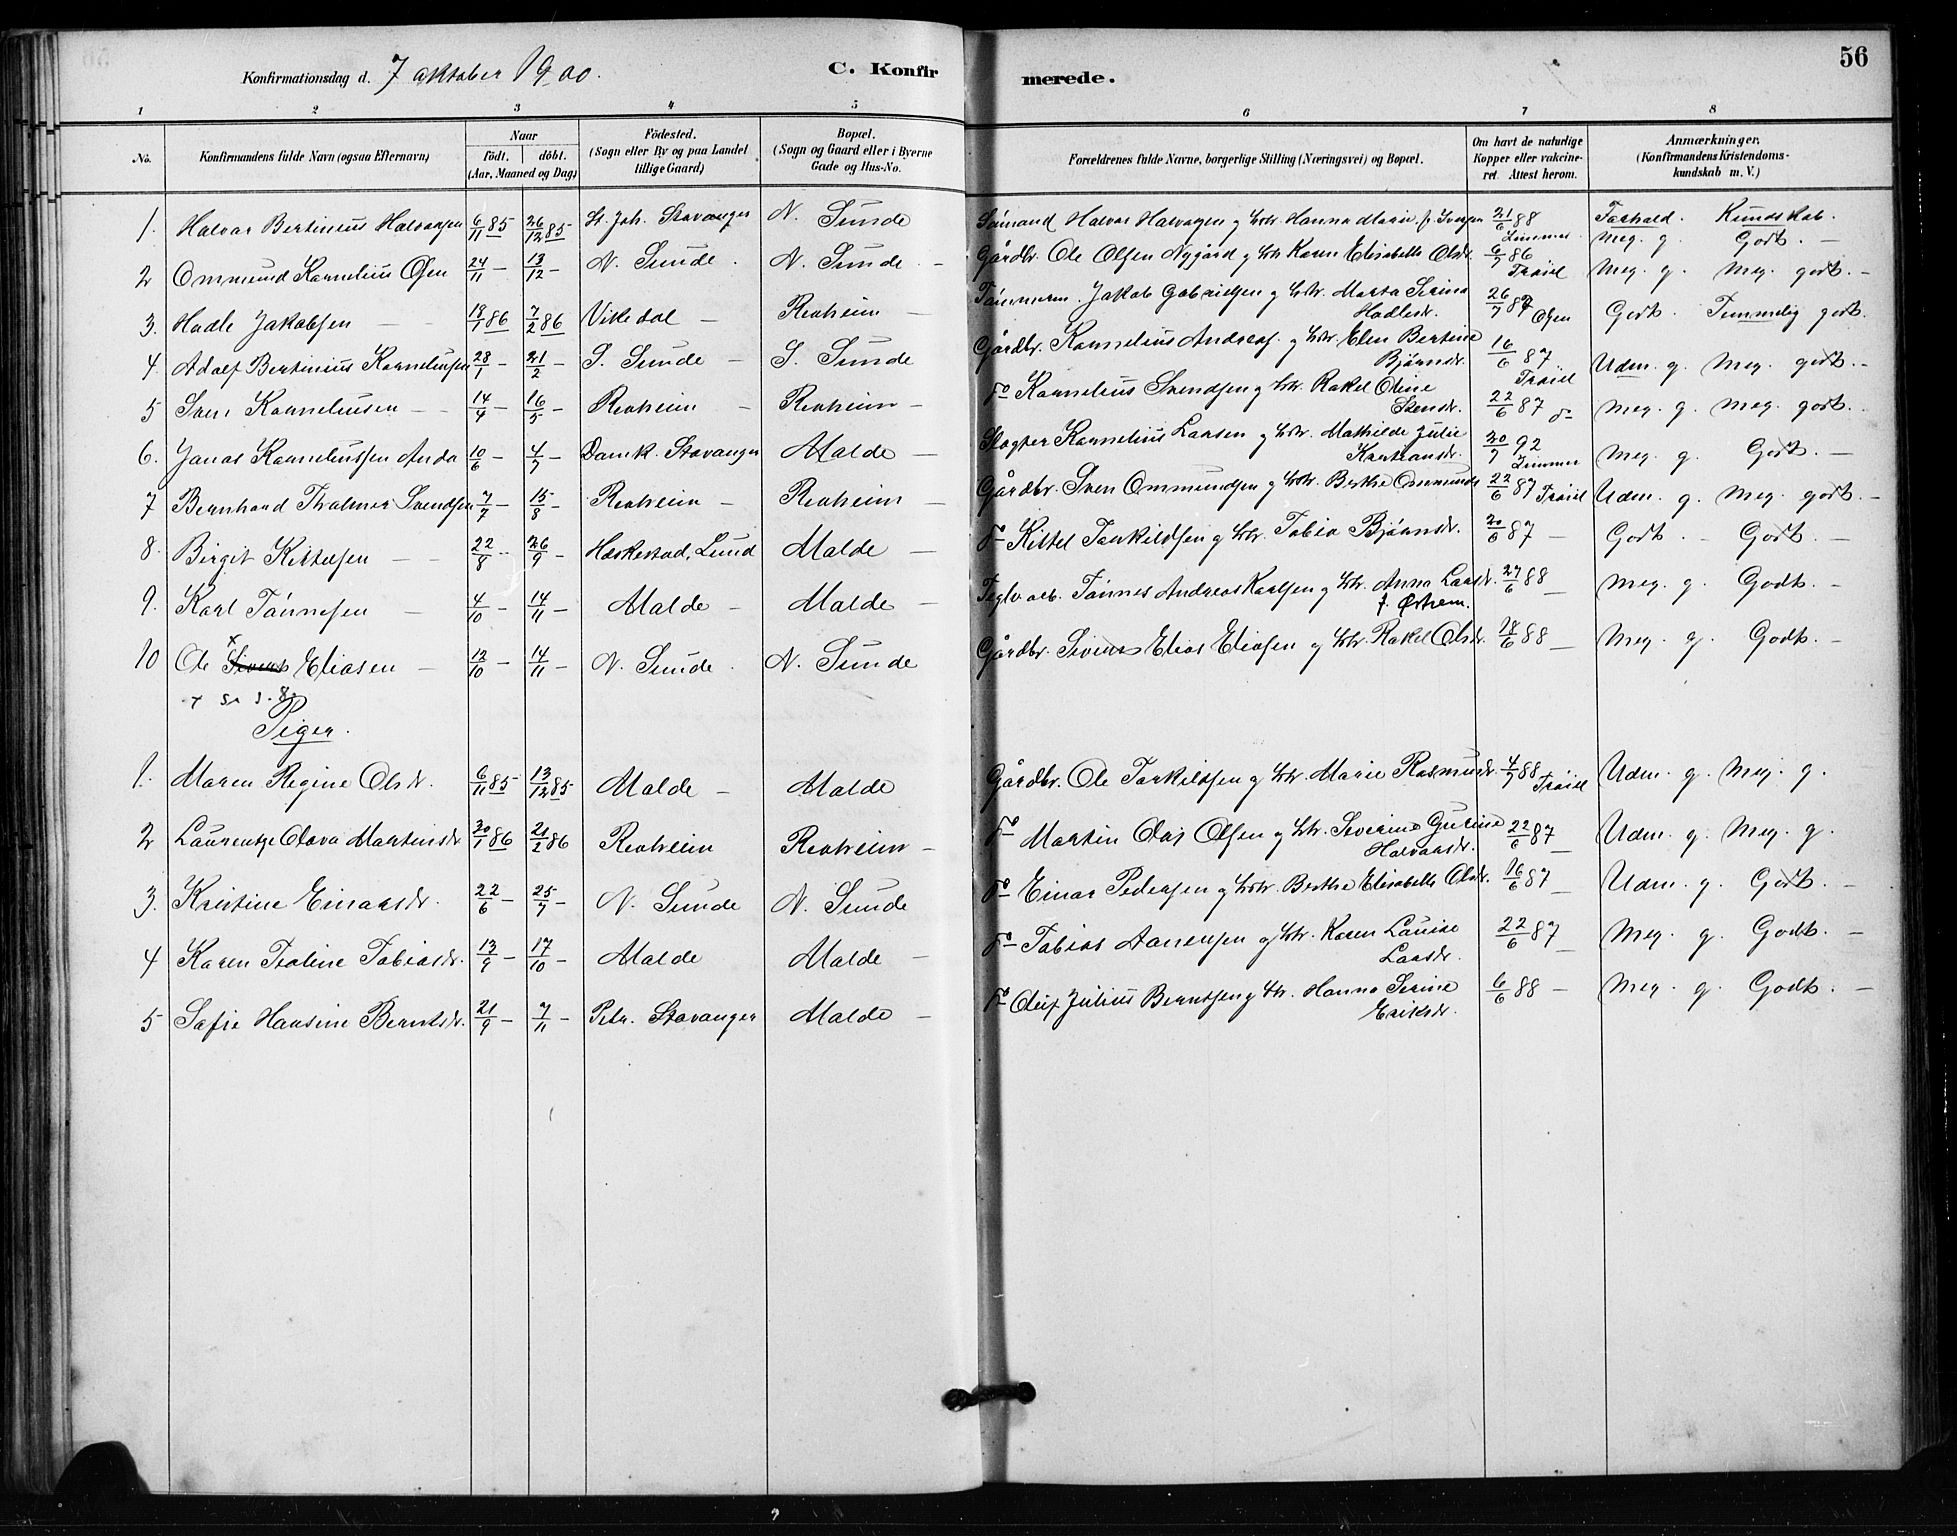 56
Konfirmationsdag d. 7 oktober 1900.
C. Konfirmerede.
1 2 3 4 5 6 7 8
No.
Konfirmandens fulde Navn (ogsaa Efternavn)
Naar
födt. döbt.
(Aar, Maaned og Dag)
Födested.
(Sogn eller By og paa Landet
tillige Gaard)
Bopæl.
(Sogn og Gaard eller i Byerne
Gade og Hus-No.
Forældrenes fulde Navne, borgerlige Stilling (Næringsvei) og Bopæl.
Om havt de naturlige
Kopper eller vakcine-
ret. Attest herom.
Anmærkninger,
(Konfirmandens Kristendoms-
kundskab m. V.)
Forhold. Kundskab.
1. Halvar Bertinius Halvorsen 6/11 85 26/12 85 St. Joh. Stavanger N. Sunde Sömand Halvor Halvorsen g Hstr. Hanna Marie f. Iversen 21/6 88 Zimmer Meg. g. Godt. –
2 Ommund Kornelius Olsen 24/11 – 13/12 – N. Sunde. N. Sunde – Gårdbr. Ole Olsen Nygård g Hstr Karen Elisabeth Olsdr. 6/7 86 Tröiel Meg. g. Meg. godt. –
3. Hadle Jakobsen – – 18/1 86 7/2 86 Vikedal – Revheim – Tömmerm. Jakob Gabrielsen g Hstr. Marta Serina
Hadlesdr. 26/7 87 Olsen Godt. Temmelig godt.
4. Adolf Bertinius Korneliussen 28/1 – 21/2 – S. Sunde – S. Sunde Gårdbr. Kornelius Andreas. g Hstr. Elen Bertine
Bjørnsdr. 16/6 87 Tröiel Udm. g. Meg. godt. –
5 Sven Korneliussen – – 14/4 – 16/5 – Revheim – Revheim – do Kornelius Svendsen g Hstr. Rakel Oline
Stensdr. 22/6 87 do Meg. g. Meg. godt.
6. Jonas Korneliussen Anda 10/6 – 4/7 – Domk. Stavanger Malde – Slagter Kornelius Larsen g Hstr. Mathilde Julie
20/7 92 Zimmer Meg. g. Godt. –
7 Bernhard Thalmer Svendsen 7/7 – 15/8 – Revheim – Revheim – Gårdbr. Sven Ommundsen g Hstr. Berthe Ommunds 22/6 87 Tröiel Udm. g. Meg. godt. –
8. Birgit Kittelsen – – 22/8 – 26/9 – Heskestad, Lund Malde – do Kittel Torkildsen g Hstr. Tobia Bjørnsdr. 20/6 87 – Godt. – Godt. –
9. Karl Tönnesen – 4/10 – 14/11 – Malde – Malde – Teglv. arb. Tönnes Andreas Karlsen g Hstr. Anna Larsdr.
f. Østrem. 27/6 88 – Meg. g. Godt. –
10 Ole Sivert Eliasen – 12/10 – 14/11 – N. Sunde. N. Sunde Gårdbr. Sivert Elias Eliasen g Hstr. Rakel Olsdr. 18/6 88 – Meg. g. Godt. –
Piger.
1. Maren Regine Olsdr. 6/11 85 13/12 85 Malde – Malde Gårdbr. Ole Torkildsen g Hstr. Marie Rasmusdr. 4/7 88 Tröiel Udm. g. Meg. g.
2 Laurentze Olava Martinsdr 30/1 86 21/2 86 Revheim Revheim – do Martin Olas Olsen g Hstr. Severine Gurine
Halvorsdr. 22/6 87 – Udm. g. Meg. g.
3. Kristine Einarsdr. 22/6 – 25/7 – N. Sunde N. Sunde do Einar Pedersen g Hstr. Berthe Elisabeth Olsdr. 16/6 87 – Udm. g. Godt. –
4 Karen Taline Tobiasdr. 13/9 – 17/10 – Malde Malde – do Tobias Aanensen g Hstr. Karen Louise
Larsdr. 22/6 87 – Meg. g. Godt. –
5 Sofie Hansine Berntsdr. 21/9 – 7/11 – Petr. Stavanger Malde – do Oluf Julius Berntsen g Hstr. Hanna Serine
Eriksdr. 6/6 88 – Meg. g. Godt. –